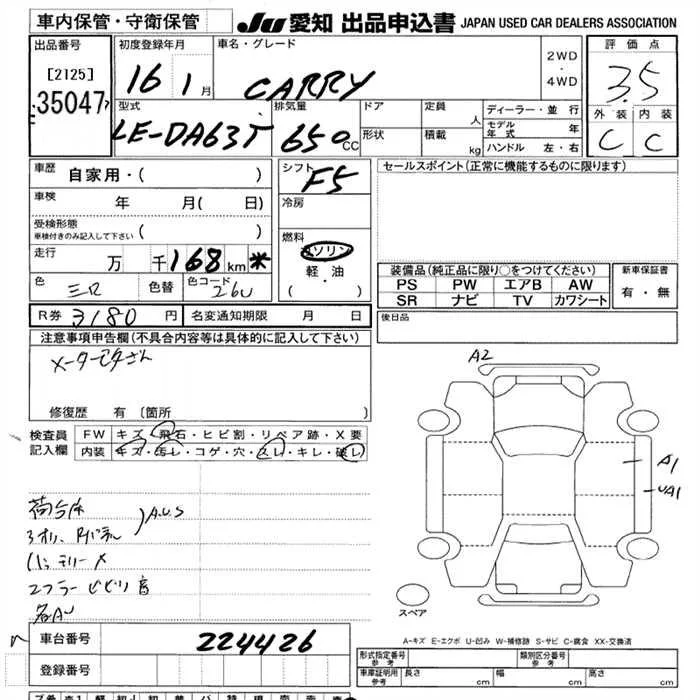 車内保管・守衛保管
JU 愛知 出品申込書 JAPAN USED CAR DEALERS ASSOCIATION
出品番号
[2125]
35047
初度登録年月
16 1月
車名・グレード
CARRY
2WD
・
4WD
評価点
3.5
外装 内装
C C
型式
LE-DA63T
排気量
650cc
ドア
形状
定員
人
積載
kg
ディーラー・並行
モデル年式 年
ハンドル 左・右
車歴 自家用・( )
車検 年 月( 日)
受検形態
車検付きのみ記入して下さい ( )
走行 万 千168km *
色 色替 色コード
26U
シフト
F5
冷房
燃料
ガソリン
・
軽・油
( )
セールスポイント(正常に機能するものに限ります)
装備品(純正品に限り○をつけてください)
PS PW エアB AW
SR ナビ TV カワシート
新車保証書
有・無
R券 3180円 名変通知期限 月 日
後日品
注意事項申告欄(不具合内容等は具体的に記入して下さい)
修復歴 有 〔箇所 〕
検査員
記入欄
FW キズ・飛石・ヒビ割・リペア跡・X要
内装 キズ・汚レ・コゲ・穴・スレ・キレ・破レ
A2
A1
UA1
荷台床
A.U.S
各AU
スペア
A-キズ E-エクボ U-凹み W-補修跡 S-サビ C-腐食 XX-交換済
車台番号 224426
登録番号
形式指定番号
参考
類別区分番号
参考
車庫証明用
参考
長さ cm 幅 cm 高さ cm